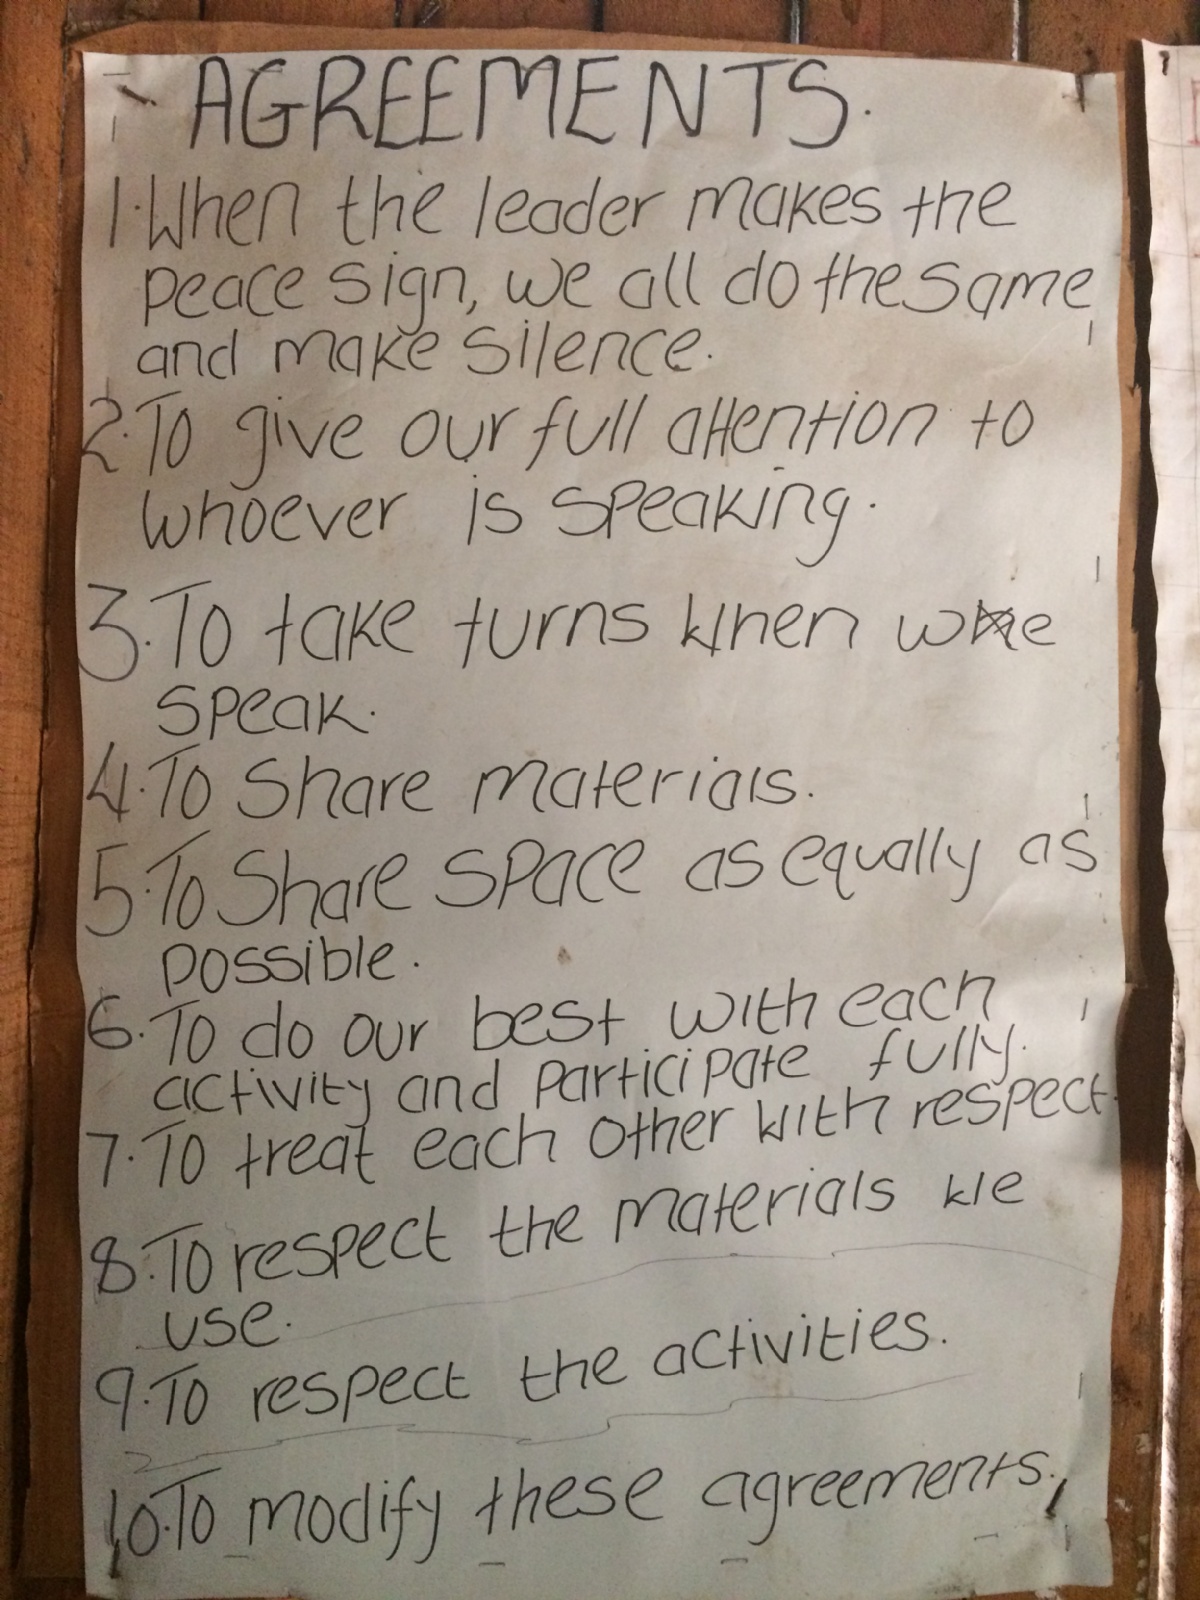 AGREEMENTS.
1. When the leader makes the
peace sign, we all do the same
and make silence.
2. To give our full attention to
whoever is speaking.
3. To take turns when we
speak.
4. To share materials.
5. To share space as equally as
possible.
6. To do our best with each
activity and participate fully.
7. To treat each other with respect.
8. To respect the materials we
use.
9. To respect the activities.
10. To modify these agreements.